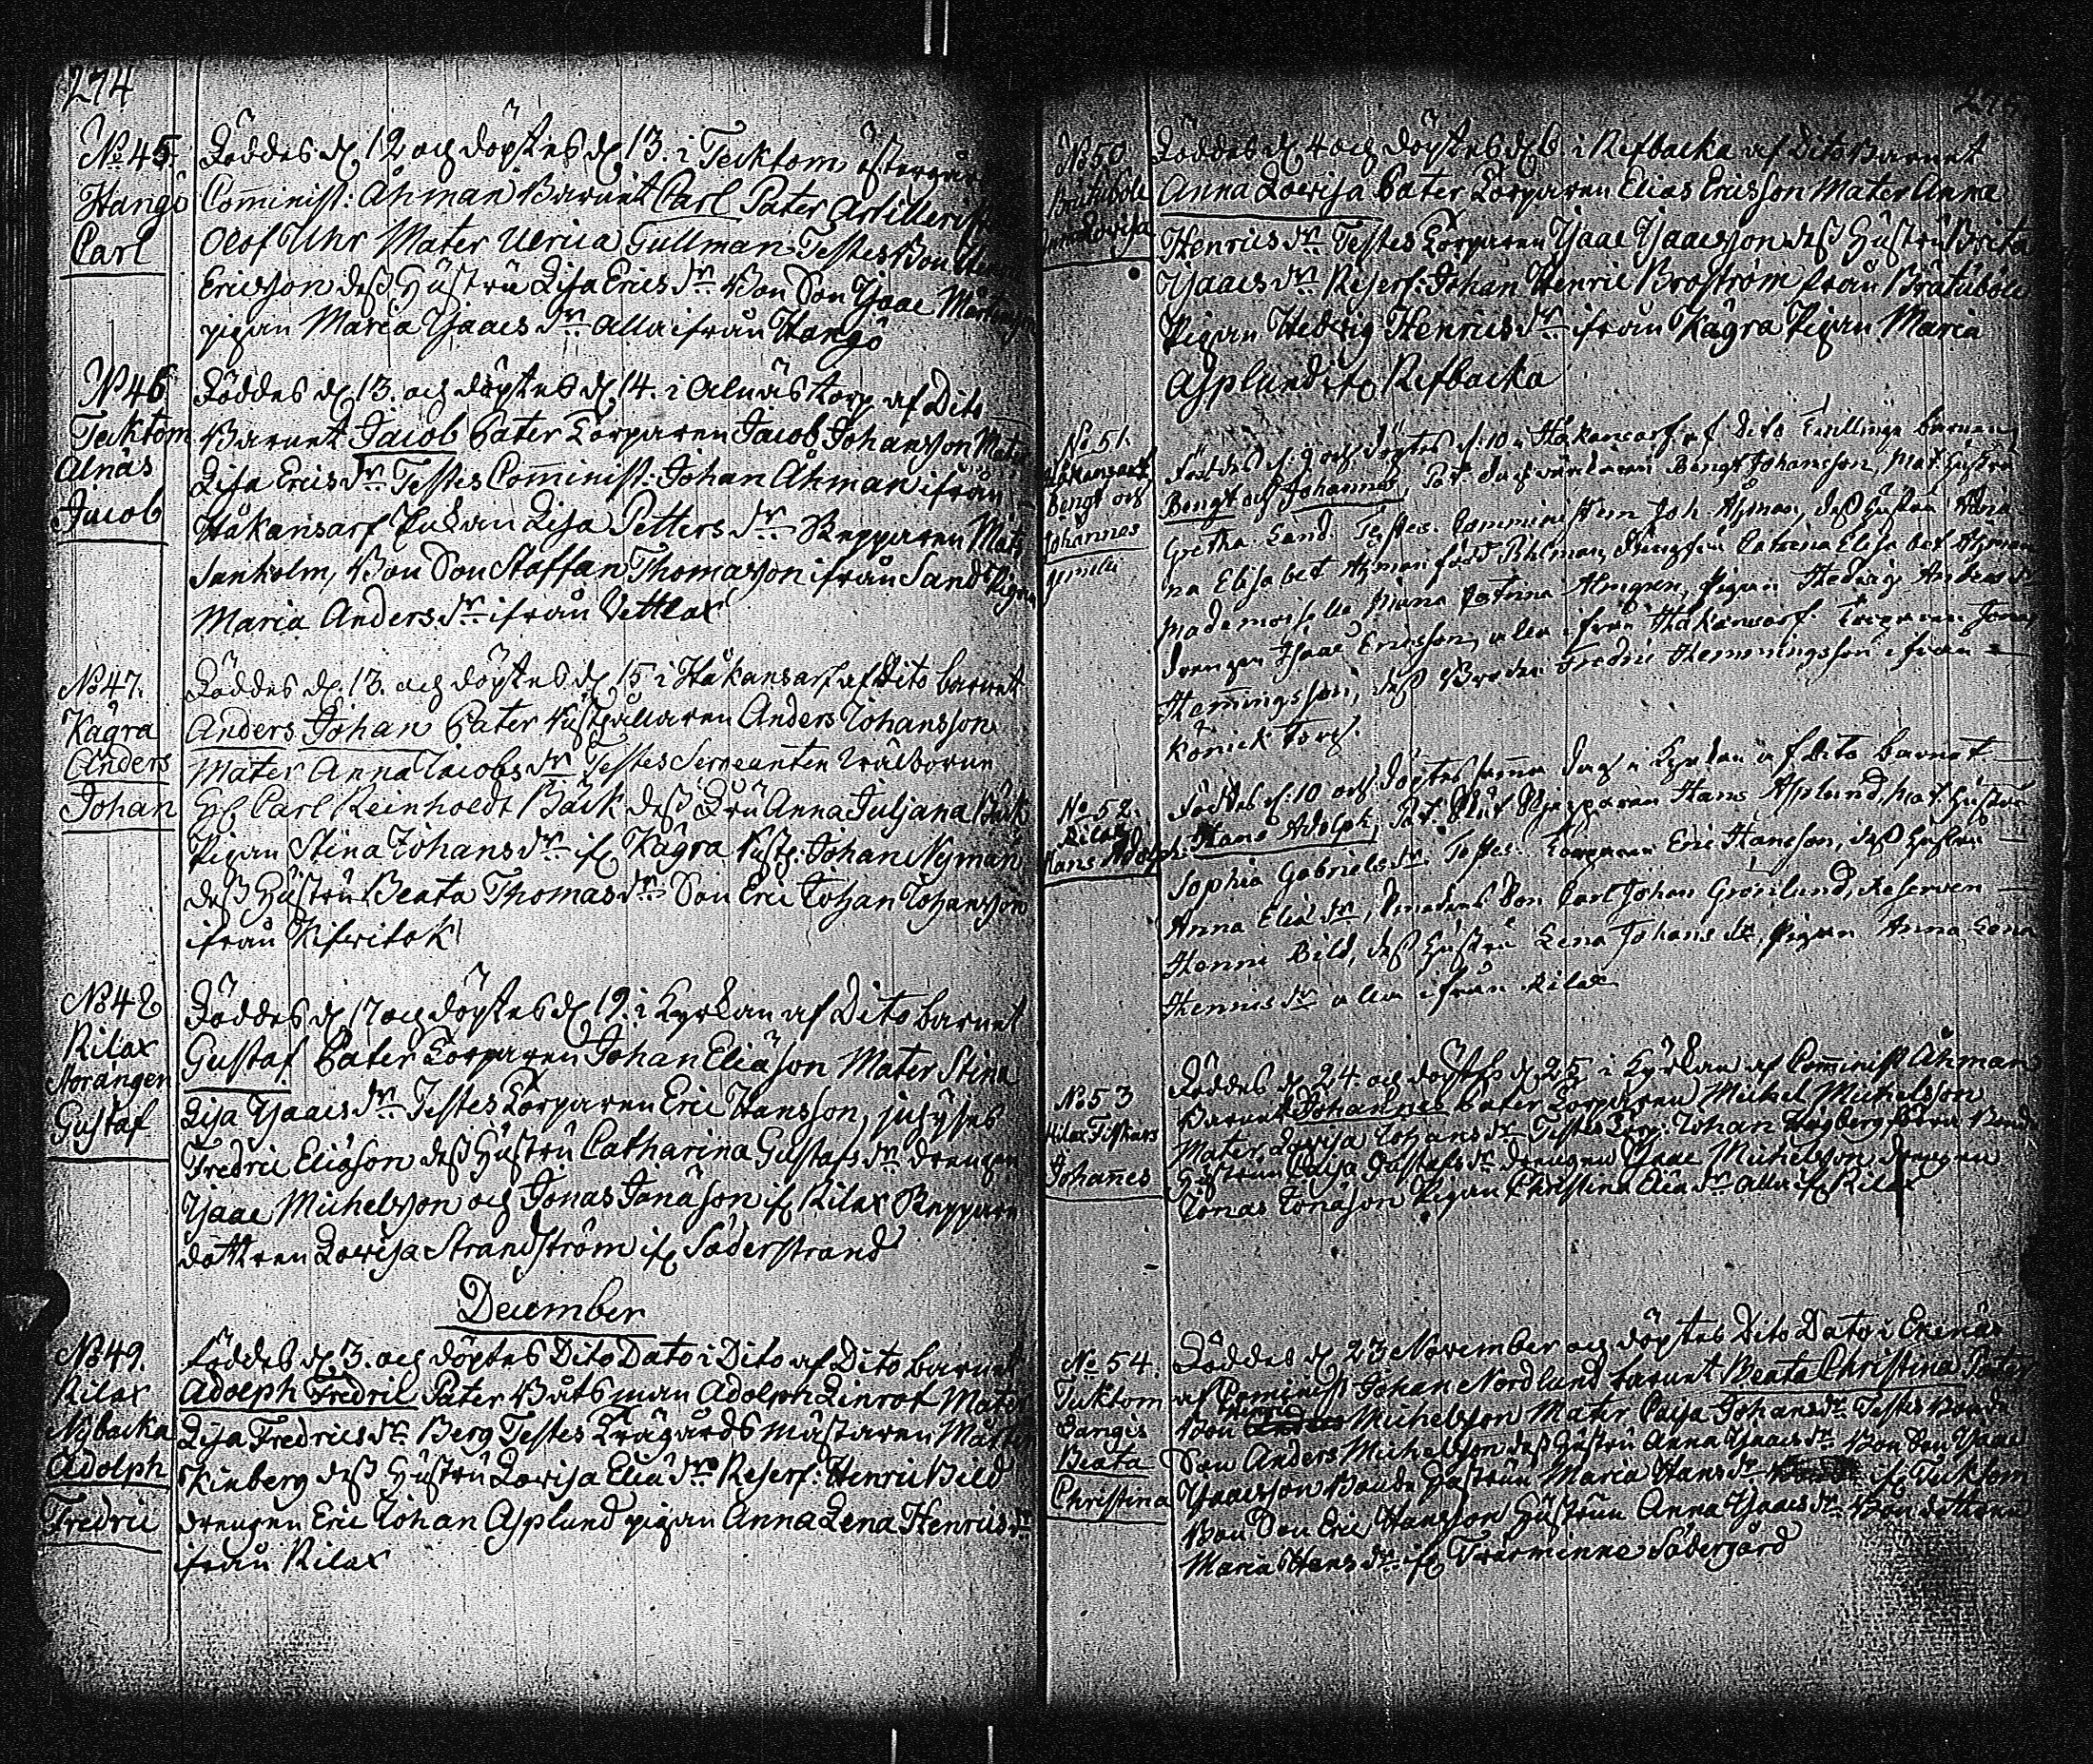 274
No 45.
Hangö
Carl
Föddes d. 12 och döptes d. 13. i Tecktom af
Comminist: Åhman Barnet Carl Pater Artillerist
Olof Uhr Mater Ulrica Tullman Testes Bon
Ericsson dess Hustru Lisa Erics dr Bon Son Isaac
pigan Maria Isaacs dr alla ifrån Hangö
No 46
Tecktom
Alnäs
Jacob
Föddes d. 13. och döptes d. 14. i Alnäs torp af Dito
Barnet Jacob Pater Torparen Jacob Johansson Mater
Lisa Erics dr Testes Comminist: Johan Åhman ifrån
Håkansarf Lisa Petters dr Repparen Mats
Sanholm, Bon Son Staffan Thomasson ifrån Sand Pigan
Maria Anders dr ifrån Vettlax
No 47.
Kågra
Anders
Johan
Föddes d. 13. och döptes d. 15 i Håkansarf af Dito barnet
Anders Johan Pater Anders Johansson
Mater Anna Jacobs dr Testes Sergeanten
Carl Reinholdt Bäck dess Fru Anna Juliana Bäck
Pigan Stina Johans dr if. Kågra Johan Nyman
dess Hustru Beata Thomas dr Son Eric Johan Johansson
ifrån
No 48
Rilax
Norängen
Gustaf
Föddes d. 17 och döptes d. 19. i Kyrkan af Dito barnet
Gustaf Pater Torparen Johan Eliäson Mater Stina
Lisa Isaacs dr Testes Torparen Eric Hansson,
Fredric Eliäson dess Hustru Catharina Gustafs dr drengen
Isaac Michelsson och Jonas Jonäson if. Rilax Reppare
dottren Lovisa Strandström if. Söderstrand
December
No 49.
Rilax
Nybacka
Adolph
Fredric
Föddes d. 3. och döptes Dito Dato i Dito af Dito barnet
Adolph Fredric Pater Båtsman Adolph Linrot Mater
Lisa Fredrics dr Berg Testes Trägårds mästaren
Kinberg dess Hustru Lovisa Eliä dr Reserf: Henric Bild
drengen Eric Johan Asplund pigan Anna Lena Henrics dr
ifrån Rilax
275
No 50
Brätuböle
Anna Lovisa
Föddes d. 4 och döptes d. 6 i Refbacka af Dito Barnet
Anna Lovisa Pater Torparen Elias Ericsson Mater Anna
Henrics dr Testes Torparen Isaac Isaacsson dess Hustru Brita
Isaacs dr Reserf: Johan Henric Broström från Brätuböle
Pigan Hedvig Henrics dr ifrån Kågra Pigan Maria
Asplund if. Refbacka
No 51.
Håkansarf
Bengt och
Johannes
gemelli
Föddes d. 9 och döptes d. 10 i Håkansarf af Dito Tvillinge barnen
Bengt och Johannes, Pat. Bengt Johansson, Mat. Hustru
Gretha Sand. Testes. Comministern Joh. Åhman, dess Hustru
na Elisabet Åhman född Pihlman, Catrina Elisabet Åhman
Mademoiselle Maria Catrina Almgren, Pigan Hedvig Anders dr
drengen Isaac Ericsson, alla ifrån Håkansarf. Torparen Jonas
Hemmingsson, dess Broder Fredric Hemmingsson ifrån
torp.
No 52.
Rilax
Hans Adolph
Föddes d. 10 och döptes samma dag i Kyrkan af Dito barnet
Hans Adolph, Pat. Hans Asplund, Mat. Hustru
Sophia Gabriels dr Testes. Torparen Eric Hansson, dess Hustru
Anna Eliä dr, Son Carl Johan Grönlund, Reserven
Henric Bild, dess Hustru Lena Johans dr, pigan Anna Lena
Henrics dr alla ifrån Rilax
No 53
Rilax Fiskars
Johannes
Föddes d. 24 och döptes d. 25 i Kyrkan af Comminist Åhman
Barnet Johannes Pater Torparen Michel Michelsson
Mater Lovisa Johans dr Testes Torp: Johan Högberg, Bonde
Hustrun Caisa Gustafs dr drengen Isaac Michelsson drengen
Jonas Jonäson Pigan Christina Eliä dr alla if. Rilax
No 54.
Tecktom
Bangis
Beata
Christina
Föddes d. 23 November och döptes Dito Dato i Ekenäs
af Cominist Johan Nordlund barnet Beata Christina Pater
Bon Henric Michelsson Mater Caisa Johans dr Testes Bonde
Son Anders Michelsson dess Hustru Anna Isaacs dr Bon Son Isaac
Isaacsson Bonde Hustrun Maria Hans dr if. Tecktom
Bon Son Eric Hansson Hustrun Anna Isaacs dr Bon dottren
Maria Hans dr if. Tvärminne Södergård